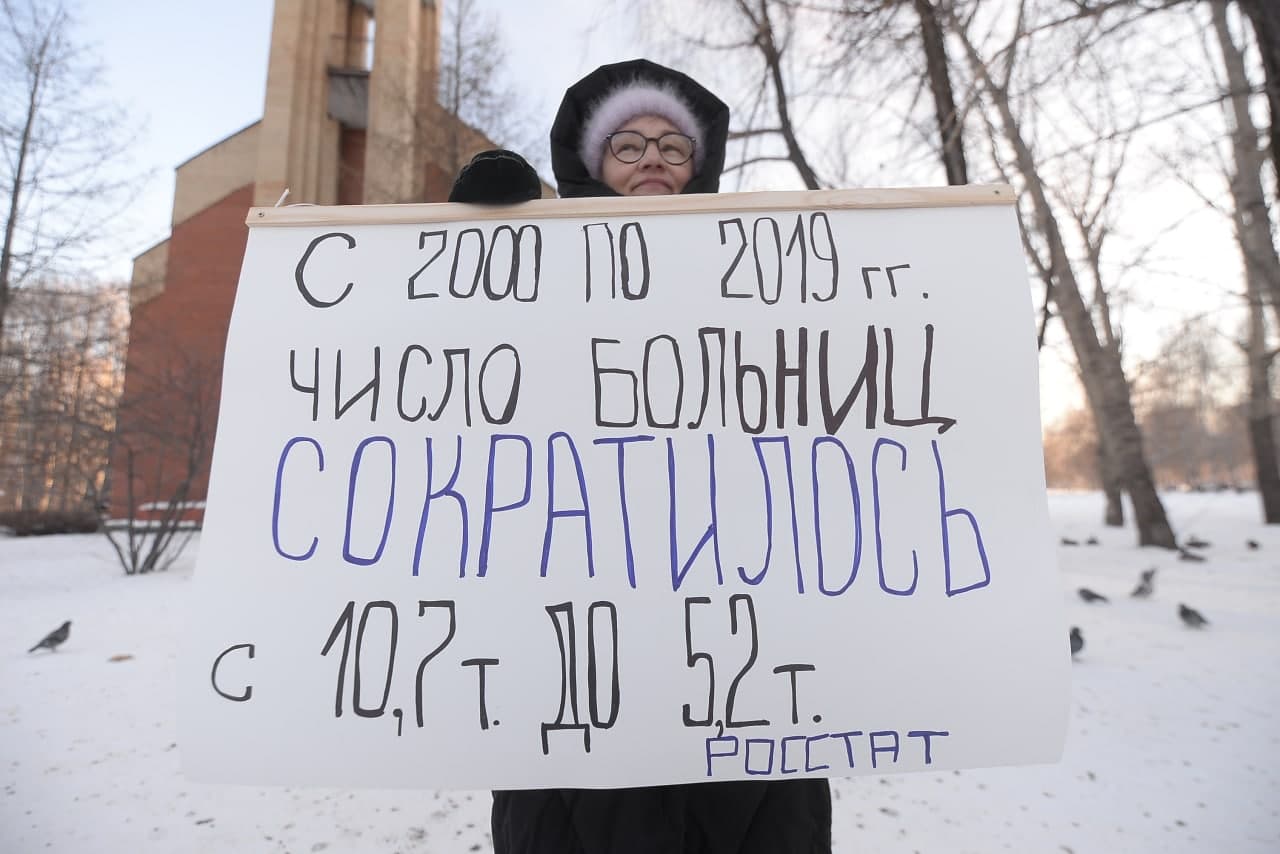 С 2000 ПО 2019 гг.
ЧИСЛО БОЛЬНИЦ
СОКРАТИЛОСЬ
С 10,7 т. ДО 5,2 т.
РОССТАТ